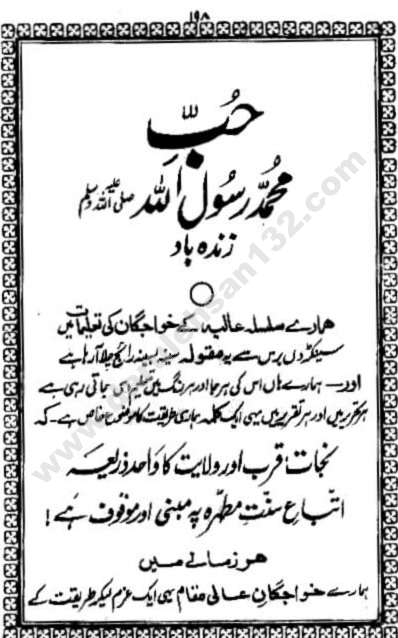 ۱۹۸
حُبِّ
محمّد رسول اللہ صلی اللہ علیہ وسلم
زندہ باد
ہمارے سلسلہ عالیہ کے خواجگان کی تعلیمات میں
سینکڑوں برس سے یہ مقولہ سینہ بسینہ رائج چلا آرہا ہے
اور — ہمارے ہاں اس کی ہر جا اور ہر رنگ میں تعلیم دی جاتی رہی ہے
ہر تحریر میں اور ہر تقریر میں یہی ایک کلمہ ہماری طریقت کا موضوعِ خاص ہے۔ کہ
نجات، قرب اور ولایت کا واحد ذریعہ
اتباعِ سنّتِ مطہرہ پہ مبنی اور موقوف ہے!
ہر زمانے میں
ہمارے خواجگانِ عالی مقام یہی ایک عزم لیکر طریقت کے